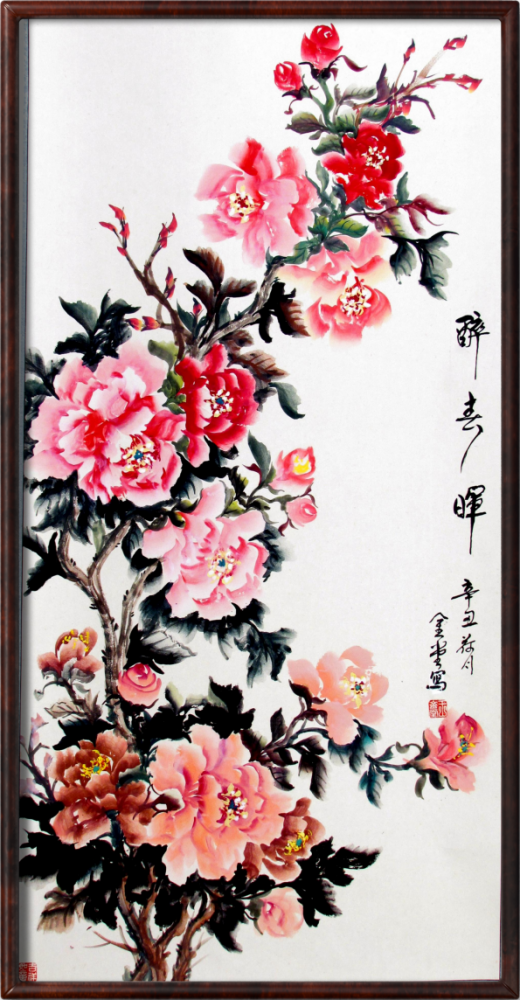 醉春暉
辛丑荷月
金堂寫